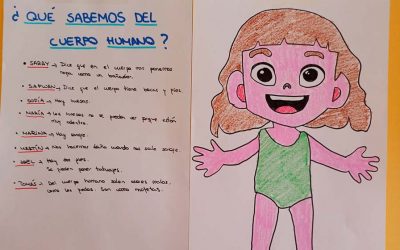 ¿ QUÉ SABEMOS DEL
CUERPO HUMANO ?
• SABBY → Dice que en el cuerpo nos ponemos
ropa como un bañador.
• SAFWAN → Dice que el cuerpo tiene brazos y pies.
• SOFÍA → Hay huesos.
• MARÍA → Los huesos no se pueden ver porque están
muy adentro.
• MARINA → Hay sangre.
• MARTÍN → Nos hacemos daño cuando nos sale sangre.
• ABEL → Hay dos pies.
Se pueden poner tatuajes.
• TOMÁS → Del cuerpo humano salen cosas malas,
como los pedos. Son como